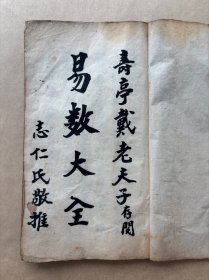 壽亭戴老夫子存閱
易數大全
志仁氏敬推